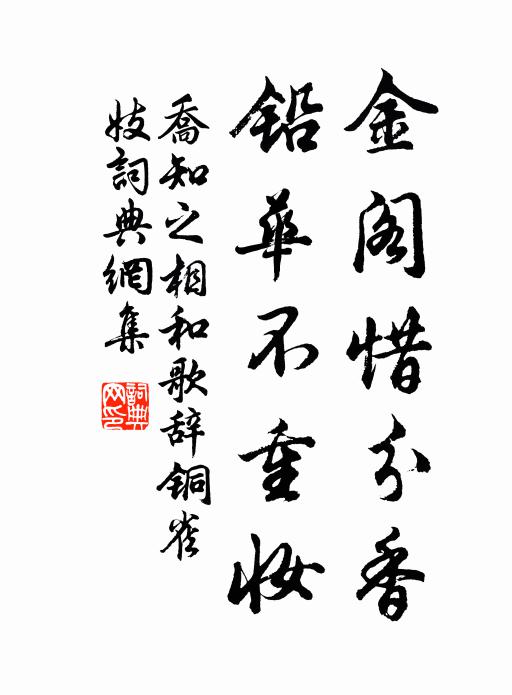 金阁惜分香
铅華不重妝
喬知之相和歌辞铜雀
妓詞典網集
詞典網印